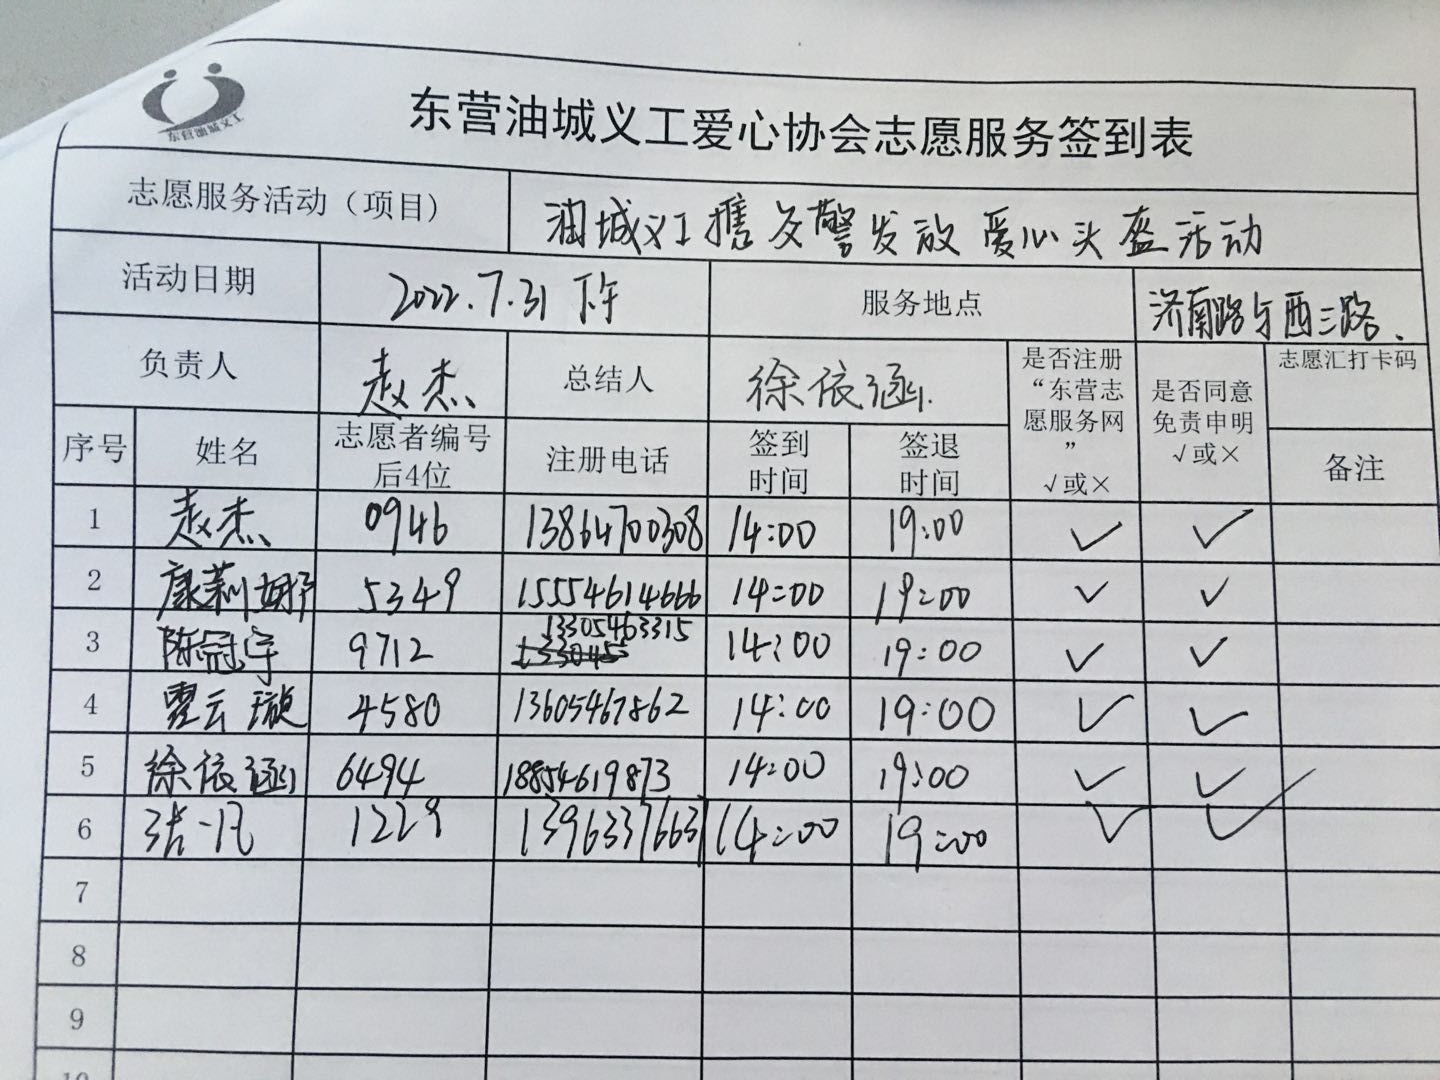 东营油城义工
东营油城义工爱心协会志愿服务签到表
志愿服务活动（项目） 油城义工携交警发放爱心头盔活动
活动日期 2022.7.31 下午 服务地点 济南路与西三路.
负责人 赵杰 总结人 徐依涵. 是否注册“东营志愿服务网” √或× 是否同意免责申明 √或× 志愿汇打卡码
序号 姓名 志愿者编号后4位 注册电话 签到时间 签退时间 备注
1 赵杰 0946 13864700308 14:00 19:00 ✓ ✓
2 康莉婷 5349 15554614666 14:00 19:00 ✓ ✓
3 陈冠宇 9712 13305463315 14:00 19:00 ✓ ✓
4 云璇 4580 13605467862 14:00 19:00 ✓ ✓
5 徐依涵 6494 18854619873 14:00 19:00 ✓ ✓
6 一凡 1229 13963376631 14:00 19:00 ✓ ✓
7
8
9
10